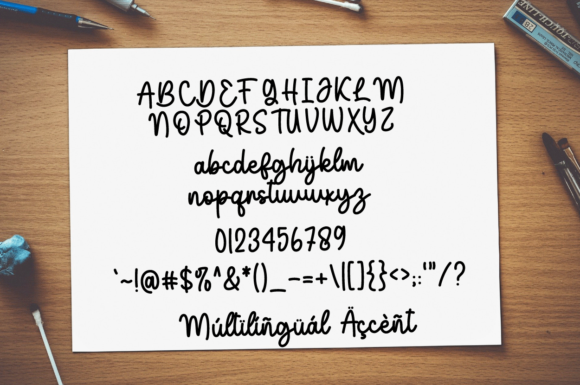 ABCDEFGHIJKLM
NOPQRSTUVWXYZ
abcdefghijklm
nopqrstuvwxyz
0123456789
`~!@#$%^&*()_-=+\|[]{}<>;:'"/?
Múltïlíñgüál Äçcèñt